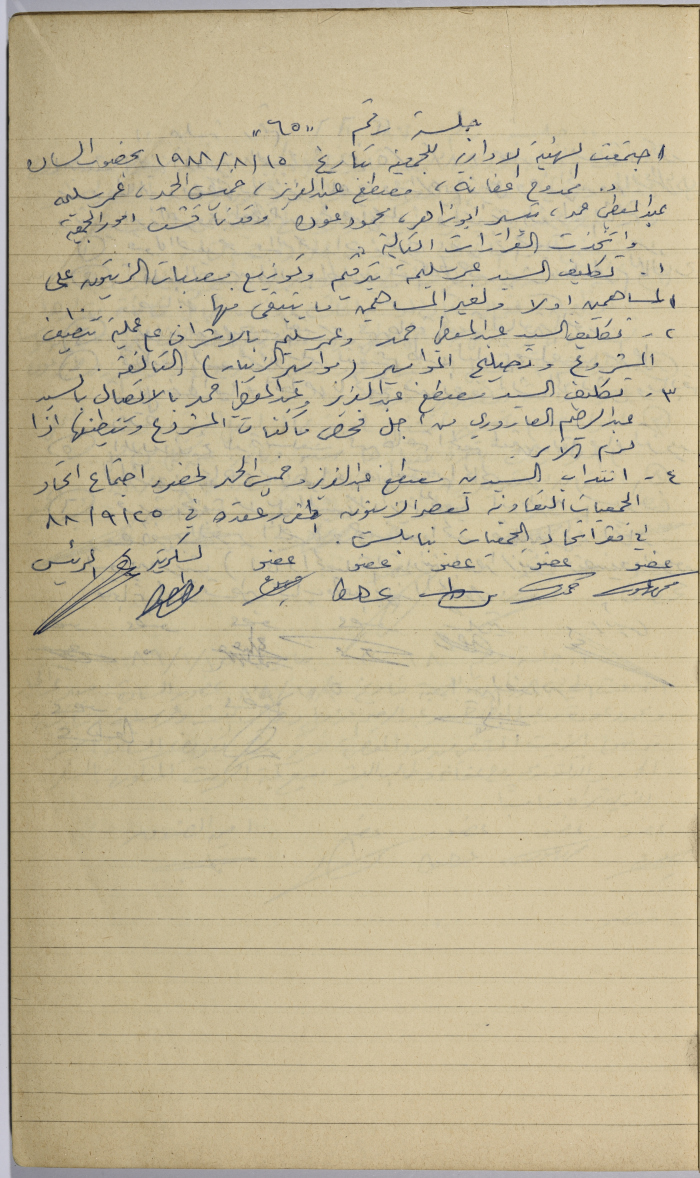 جلسة رقم "٦٥"
اجتمعت الهيئة الادارية للجمعية بتاريخ ١٩٨٨/٨/١٥ بحضور السادة
د. ممدوح ، مصطفى عبدالعزيز ، خميس الحمد ، عمر سليمه
عبدالمعطي حمد ، تيسير ابو زاهر ، محمود عوده وقد ناقشت امور الجمعية
واتخذت القرارات التالية :
١. تكليف السيد عمر سليمة بترقيم وتوزيع مصبات الزيتون على
المساهمين اولا ولغير المساهمين ما يتبقى منها .
٢ - تكليف السيد عبدالمعطي حمد وعمر سليمه بالاشراف على عملية تنظيف
المشروع وتصليح المواسير (مواسير الزيبار) التالفة .
٣ - تكليف السيد مصطفى عبدالعزيز وعبدالمعطي حمد بالاتصال بالسيد
عبدالرحيم العاروري من اجل فحص ماكنات المشروع وتنظيفها اذا
لزم الامر
٤ - انتداب السيدين مصطفى عبدالعزيز وخميس الحمد لحضور اجتماع اتحاد
الجمعيات التعاونية لعصر الزيتون المقرر عقده في ٨٨/٩/٢٥
في مقر اتحاد الجمعيات بنابلس .
عضو عضو عضو عضو عضو السكرتير الرئيس